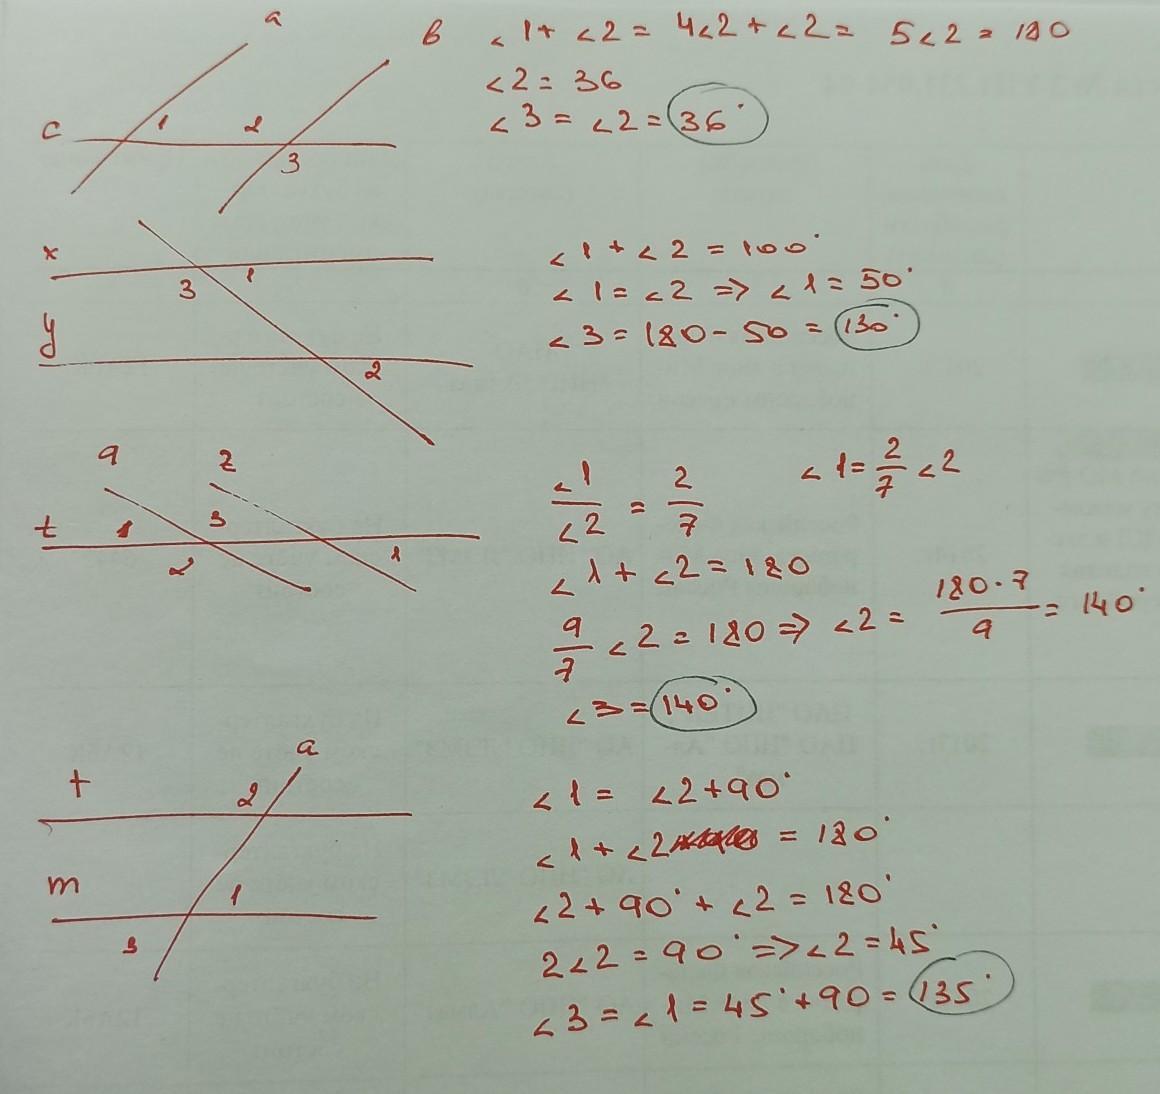 a
b
c 1 2
3
∠1 + ∠2 = 4∠2 + ∠2 = 5∠2 = 180
∠2 = 36
∠3 = ∠2 = 36°
x
3 1
y
2
∠1 + ∠2 = 100°
∠1 = ∠2 => ∠1 = 50°
∠3 = 180 - 50 = 130°
a z
t 1 3
2 1
∠1/∠2 = 2/7 ∠1 = 2/7 ∠2
∠1 + ∠2 = 180
9/7 ∠2 = 180 => ∠2 = 180·7/9 = 140°
∠3 = 140°
a
t 2
m 1
3
∠1 = ∠2 + 90°
∠1 + ∠2 = 180°
∠2 + 90° + ∠2 = 180°
2∠2 = 90° => ∠2 = 45°
∠3 = ∠1 = 45° + 90 = 135°